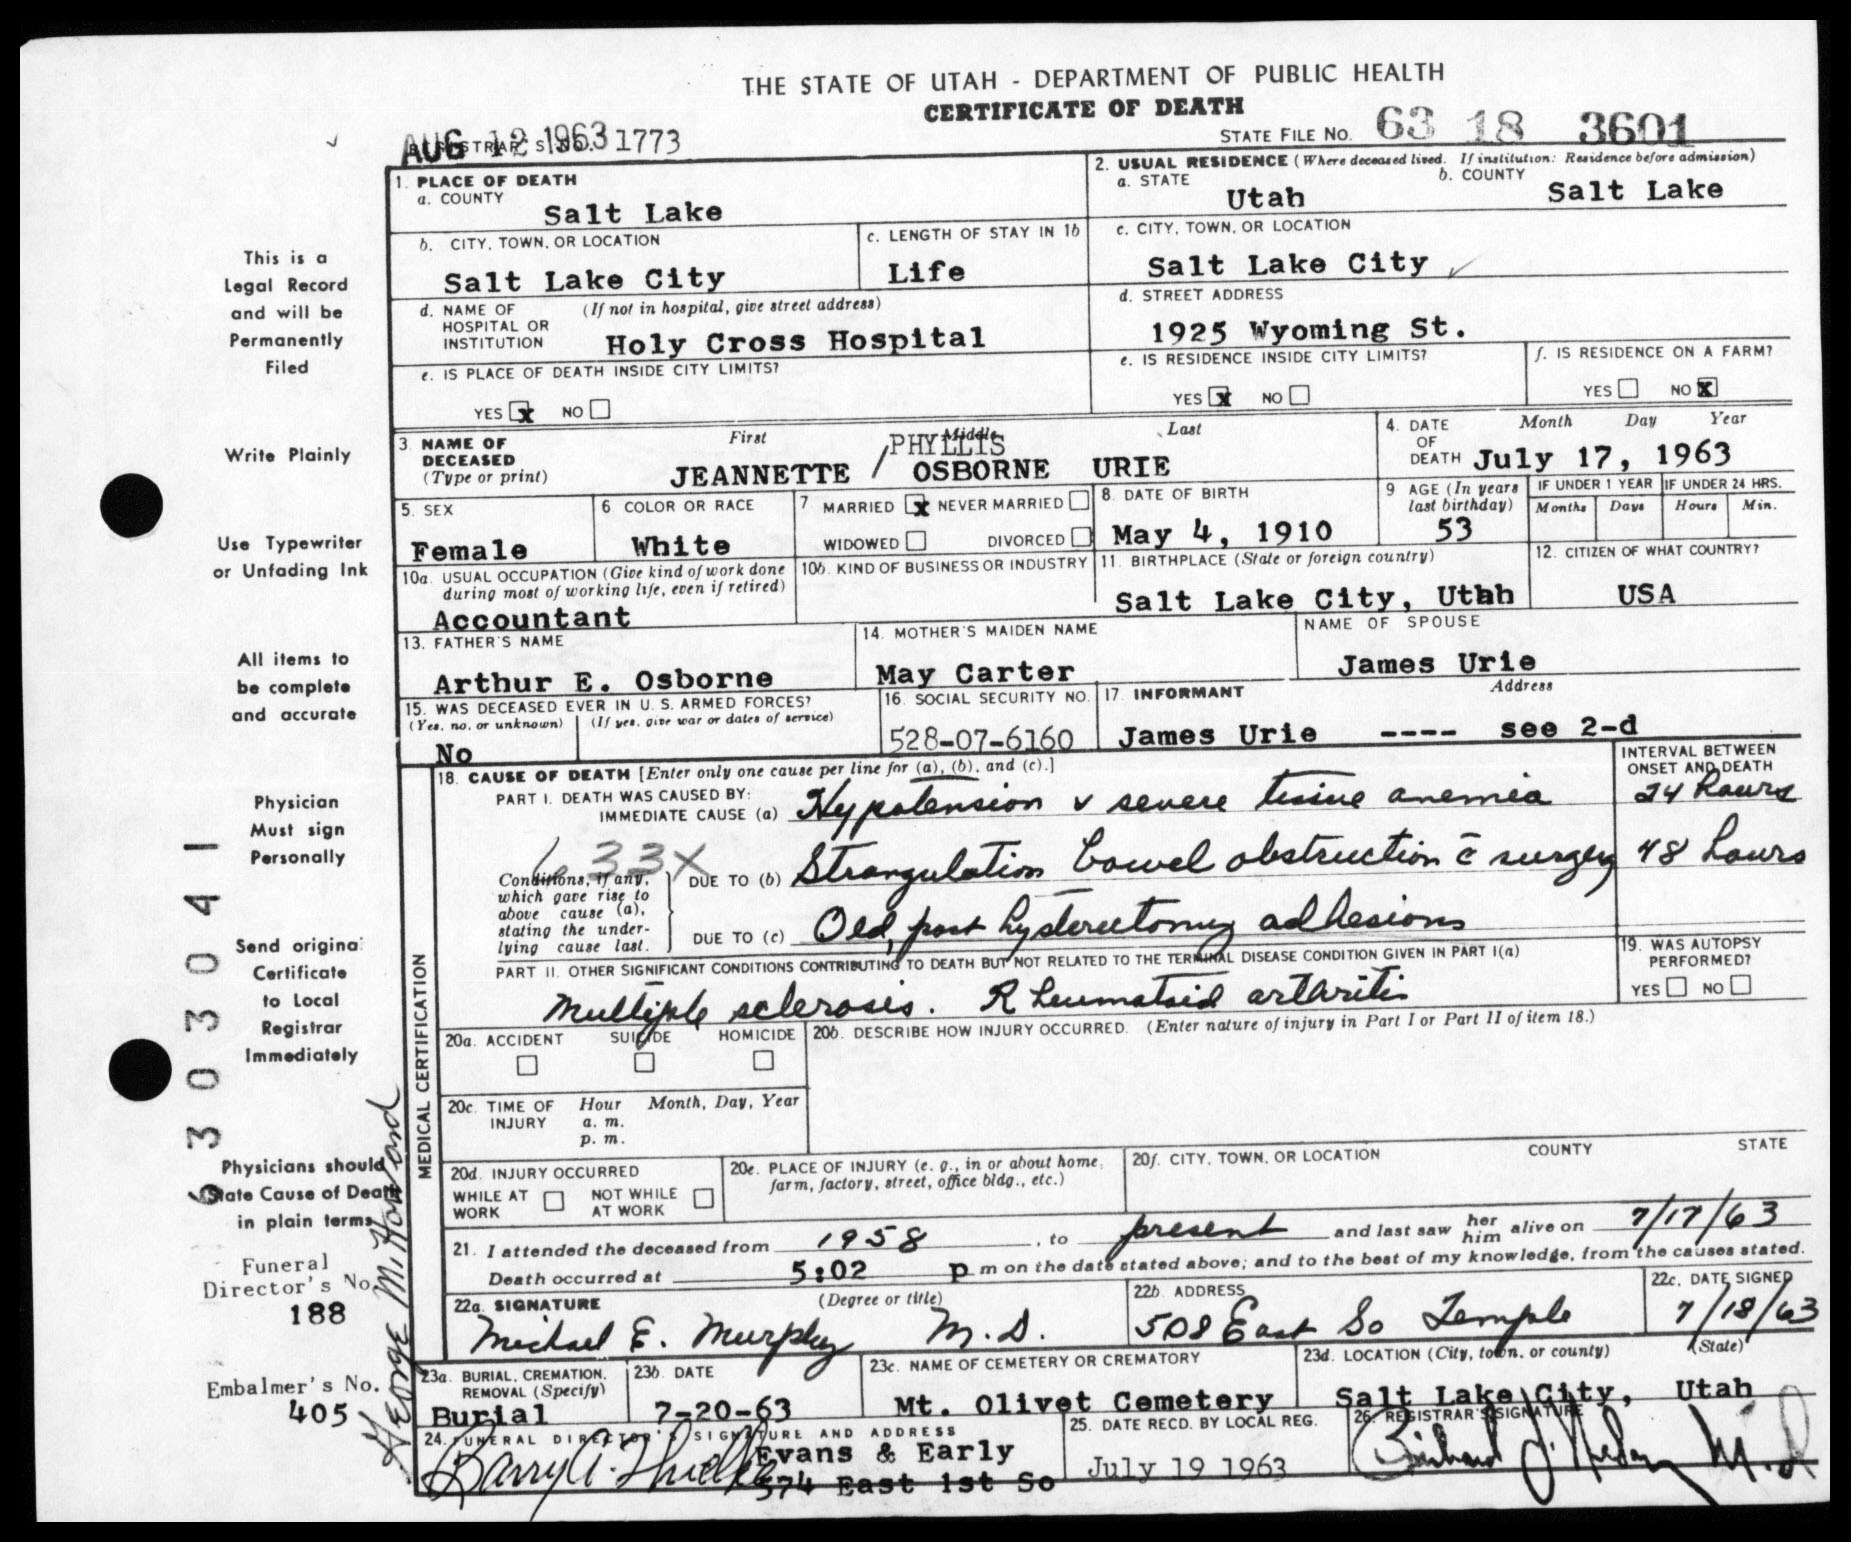 THE STATE OF UTAH - DEPARTMENT OF PUBLIC HEALTH
CERTIFICATE OF DEATH
STATE FILE NO. 63 18 3601
AUG 12 1963
REGISTRAR'S NO. 1773
1. PLACE OF DEATH
a. COUNTY
Salt Lake
2. USUAL RESIDENCE (Where deceased lived. If institution: Residence before admission)
a. STATE
Utah
b. COUNTY
Salt Lake
b. CITY, TOWN, OR LOCATION
Salt Lake City
c. LENGTH OF STAY IN 1b
Life
c. CITY, TOWN, OR LOCATION
Salt Lake City
d. NAME OF HOSPITAL OR INSTITUTION
(If not in hospital, give street address)
Holy Cross Hospital
d. STREET ADDRESS
1925 Wyoming St.
e. IS PLACE OF DEATH INSIDE CITY LIMITS?
YES x NO
e. IS RESIDENCE INSIDE CITY LIMITS?
YES x NO
f. IS RESIDENCE ON A FARM?
YES NO X
3 NAME OF DECEASED
(Type or print)
First Middle Last
PHYLLIS
JEANNETTE / OSBORNE URIE
4. DATE OF DEATH
Month Day Year
July 17, 1963
5. SEX
Female
6 COLOR OR RACE
White
7 MARRIED x NEVER MARRIED
WIDOWED DIVORCED
8. DATE OF BIRTH
May 4, 1910
9 AGE (In years last birthday)
53
IF UNDER 1 YEAR
Months Days
IF UNDER 24 HRS.
Hours Min.
10a. USUAL OCCUPATION (Give kind of work done during most of working life, even if retired)
Accountant
10b. KIND OF BUSINESS OR INDUSTRY
11. BIRTHPLACE (State or foreign country)
Salt Lake City, Utah
12. CITIZEN OF WHAT COUNTRY?
USA
13. FATHER'S NAME
Arthur E. Osborne
14. MOTHER'S MAIDEN NAME
May Carter
NAME OF SPOUSE
James Urie
15. WAS DECEASED EVER IN U. S. ARMED FORCES?
(Yes, no, or unknown) (If yes, give war or dates of service)
No
16. SOCIAL SECURITY NO.
528-07-6160
17. INFORMANT Address
James Urie ---- see 2-d
MEDICAL CERTIFICATION
18. CAUSE OF DEATH [Enter only one cause per line for (a), (b), and (c).]
INTERVAL BETWEEN ONSET AND DEATH
PART I. DEATH WAS CAUSED BY:
IMMEDIATE CAUSE (a) Hypotension v severe tissue anemia 24 hours
633X
Conditions, if any, which gave rise to above cause (a), stating the underlying cause last.
DUE TO (b) Strangulation bowel obstruction c̄ surgery 48 hours
DUE TO (c) Old, post hysterectomy adhesions
PART II. OTHER SIGNIFICANT CONDITIONS CONTRIBUTING TO DEATH BUT NOT RELATED TO THE TERMINAL DISEASE CONDITION GIVEN IN PART I(a)
Multiple sclerosis. Rheumatoid arthritis
19. WAS AUTOPSY PERFORMED?
YES NO
20a. ACCIDENT SUICIDE HOMICIDE
20b. DESCRIBE HOW INJURY OCCURRED. (Enter nature of injury in Part I or Part II of item 18.)
20c. TIME OF INJURY
Hour Month, Day, Year
a. m.
p. m.
20d. INJURY OCCURRED
WHILE AT WORK NOT WHILE AT WORK
20e. PLACE OF INJURY (e. g., in or about home, farm, factory, street, office bldg., etc.)
20f. CITY, TOWN, OR LOCATION COUNTY STATE
21. I attended the deceased from 1958, to present and last saw her him alive on 7/17/63
Death occurred at 5:02 p m on the date stated above; and to the best of my knowledge, from the causes stated.
22a. SIGNATURE (Degree or title)
Michael E. Murphy M.D.
22b. ADDRESS
508 East So Temple
22c. DATE SIGNED
7/18/63
23a. BURIAL, CREMATION, REMOVAL (Specify)
Burial
23b. DATE
7-20-63
23c. NAME OF CEMETERY OR CREMATORY
Mt. Olivet Cemetery
23d. LOCATION (City, town, or county) (State)
Salt Lake City, Utah
24. FUNERAL DIRECTOR'S SIGNATURE AND ADDRESS
Evans & Early
574 East 1st So
25. DATE RECD. BY LOCAL REG.
July 19 1963
26. REGISTRAR'S SIGNATURE
This is a
Legal Record
and will be
Permanently
Filed
Write Plainly
Use Typewriter
or Unfading Ink
All items to
be complete
and accurate
Physician
Must sign
Personally
Send original
Certificate
to Local
Registrar
Immediately
Physicians should
State Cause of Death
in plain terms
Funeral
Director's No.
188
Embalmer's No.
405
George M. Howard
6303041